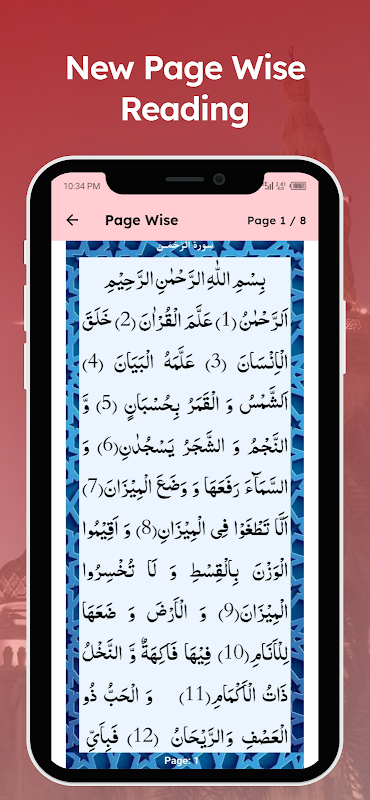 New Page Wise
Reading
10:34 PM
Page Wise
Page 1 / 8
سورة الرحمن
بِسْمِ اللّٰهِ الرَّحْمٰنِ الرَّحِيْمِ
اَلرَّحْمٰنُ (1) عَلَّمَ الْقُرْاٰنَ (2) خَلَقَ
الْاِنْسَانَ (3) عَلَّمَهُ الْبَيَانَ (4)
اَلشَّمْسُ وَ الْقَمَرُ بِحُسْبَانٍ (5) وَّ
النَّجْمُ وَ الشَّجَرُ يَسْجُدٰنِ(6) وَ
السَّمَآءَ رَفَعَهَا وَ وَضَعَ الْمِيْزَانَ(7)
اَلَّا تَطْغَوْا فِی الْمِيْزَانِ(8) وَ اَقِيْمُوا
الْوَزْنَ بِالْقِسْطِ وَ لَا تُخْسِرُوا
الْمِيْزَانَ(9) وَ الْاَرْضَ وَ ضَعَهَا
لِلْاَنَامِ(10) فِيْهَا فَاكِهَةٌ وَّ النَّخْلُ
ذَاتُ الْاَكْمَامِ(11) وَ الْحَبُّ ذُو
الْعَصْفِ وَالرَّيْحَانُ (12) فَبِاَیِّ
Page: 1